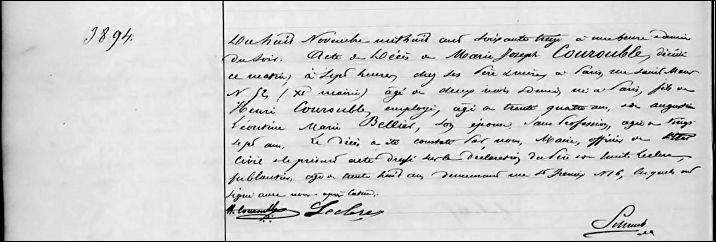 3894.
Du huit Novembre mil huit cent soixante treize à une heure et demie
du soir. Acte de Décès de Marie Joseph Courouble, décédé
ce matin, à sept heures, chez ses Père et mère, à Paris, rue Saint Maur
N° 52 (XIe mairie) âgé de deux mois et demi, né à Paris, fils de
Henri Courouble, employé, âgé de trente quatre ans, et de augustine
Léontine Marie Bellier, son épouse, sans Profession, âgée de vingt
sept ans. Le Décès a été constaté Par nous, Maire, officier de l'état
Civil et le présent acte dressé sur la déclaration du Père et de Leclerc,
ferblantier, âgé de trente huit ans demeurant rue N° 16, lesquels ont
signé avec nous après lecture.
H. Courouble Leclerc